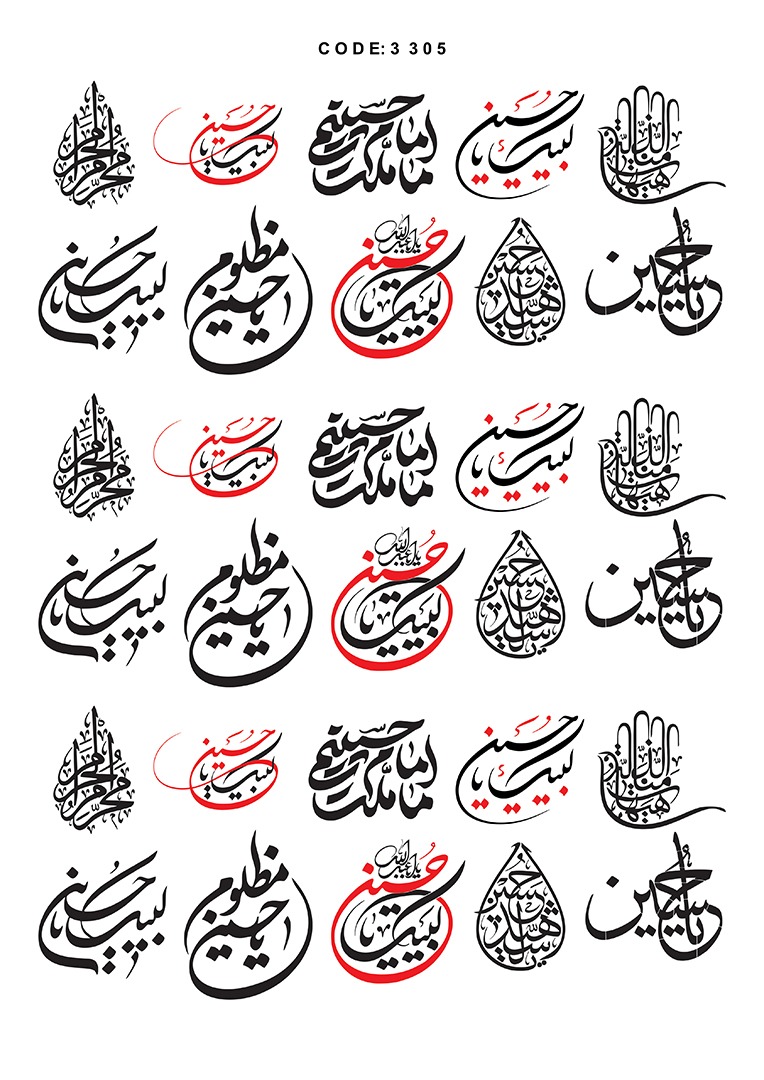 CODE:3 305
هیهات منا الذلة
لبیک یا حسین
ما ملت امام حسینیم
لبیک یا حسین
محرم محرم محرم
یا حسین
یا حسین شهید
یا اباعبدالله لبیک یا حسین
یا حسین مظلوم
لبیک یا حسین
هیهات منا الذلة
لبیک یا حسین
ما ملت امام حسینیم
لبیک یا حسین
محرم محرم محرم
یا حسین
یا حسین شهید
یا اباعبدالله لبیک یا حسین
یا حسین مظلوم
لبیک یا حسین
هیهات منا الذلة
لبیک یا حسین
ما ملت امام حسینیم
لبیک یا حسین
محرم محرم محرم
یا حسین
یا حسین شهید
یا اباعبدالله لبیک یا حسین
یا حسین مظلوم
لبیک یا حسین